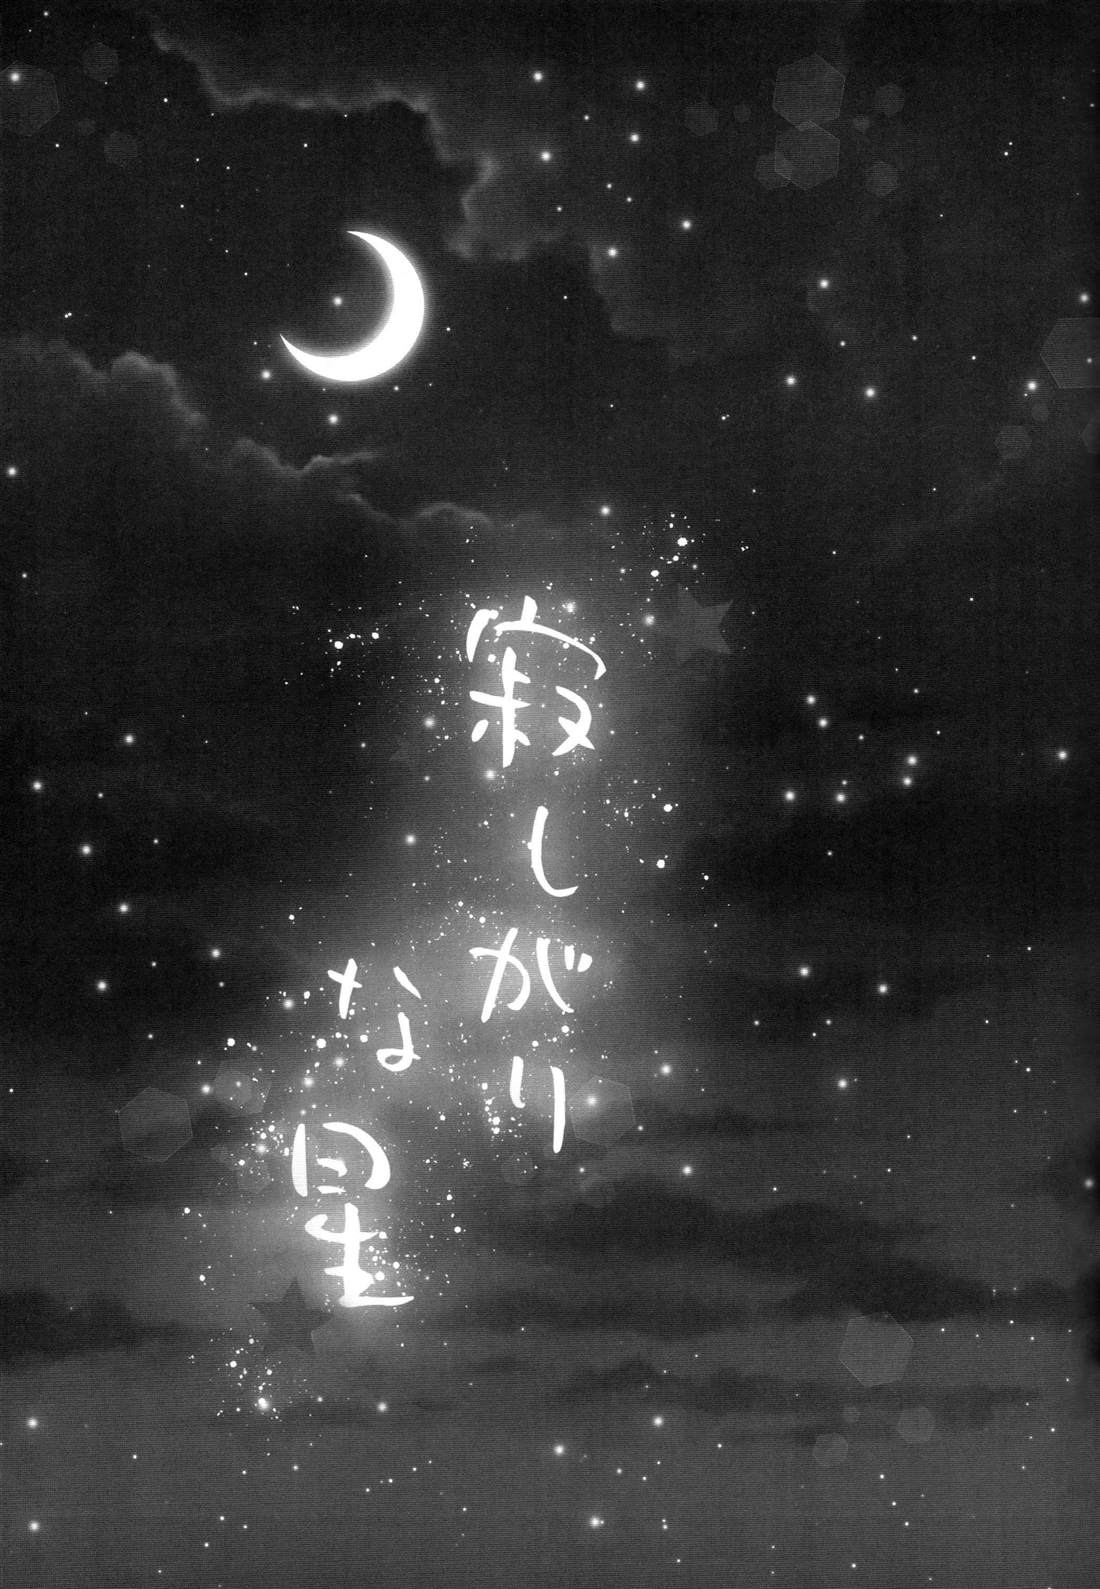 寂しがり
な星